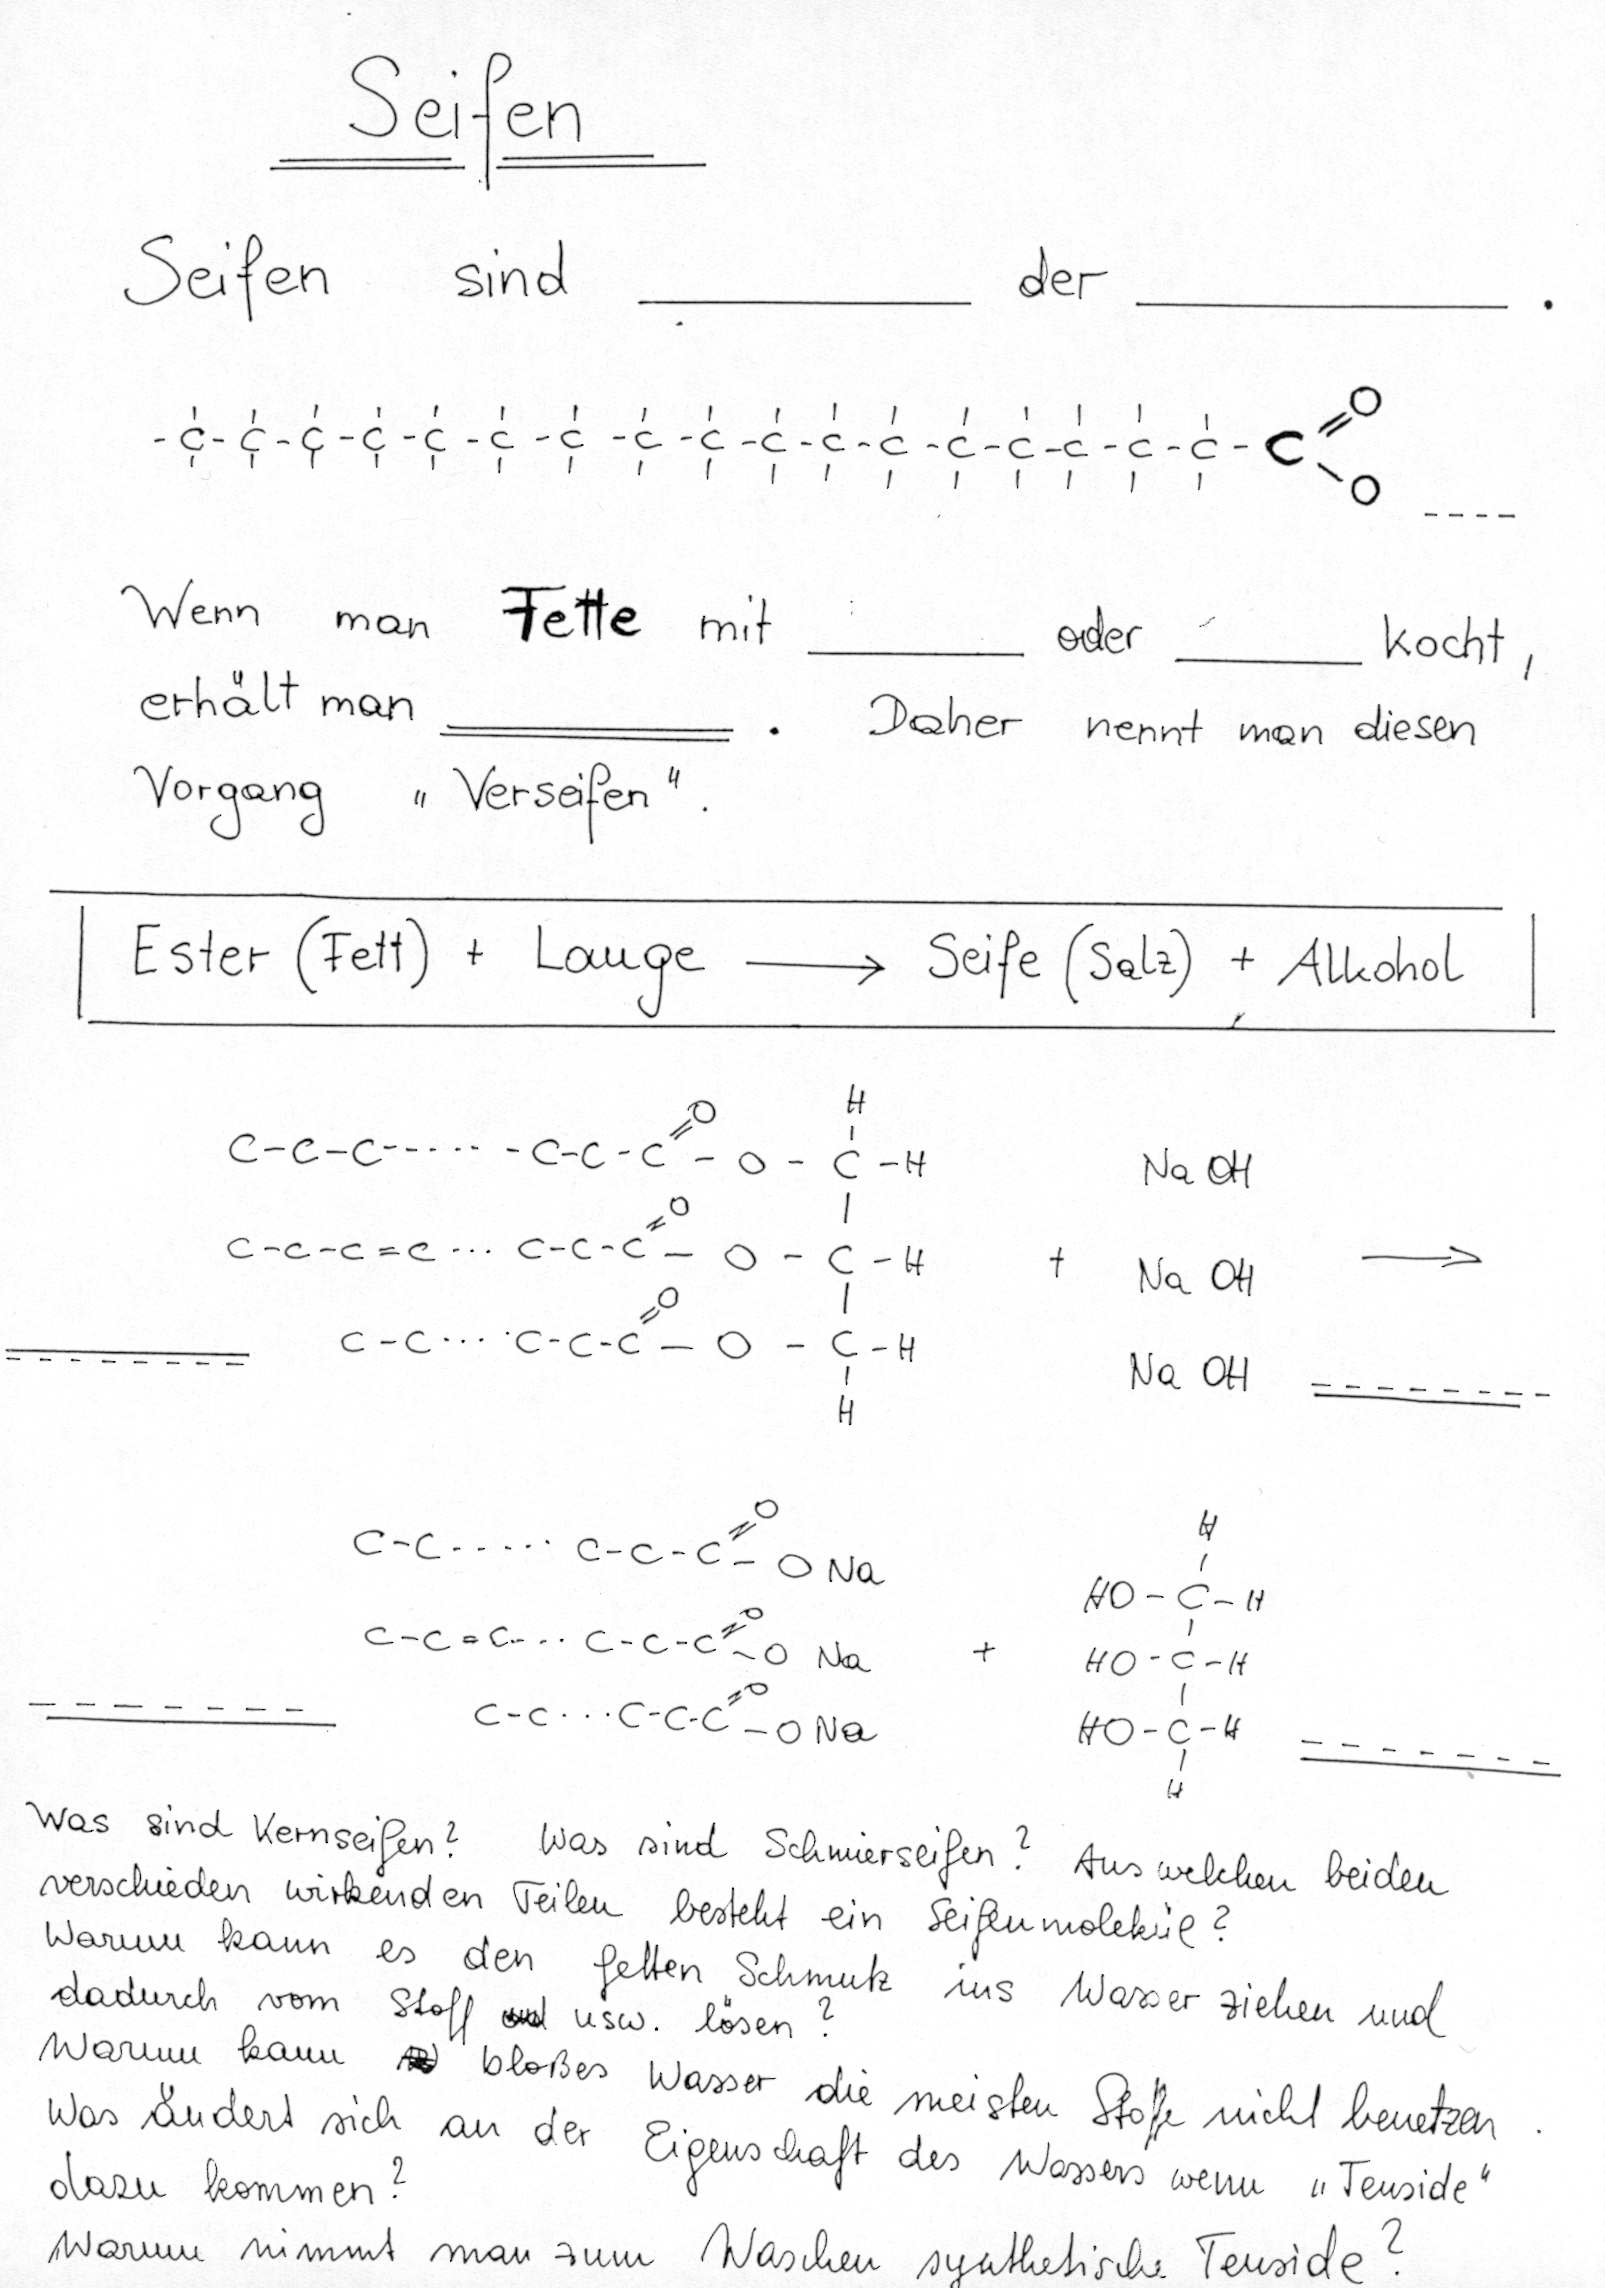 Seifen
Seifen sind ________ der ________ .
-C-C-C-C-C-C-C-C-C-C-C-C-C-C-C-C-C-C=O
-O ----
Wenn man Fette mit ______ oder ______ kocht,
erhält man ________ . Daher nennt man diesen
Vorgang „Verseifen".
Ester (Fett) + Lauge → Seife (Salz) + Alkohol
H
C-C-C-····-C-C-C=O-O-C-H NaOH
C-C-C=C···C-C-C=O-O-C-H + NaOH →
C-C····C-C-C=O-O-C-H NaOH
H
H
C-C-····C-C-C=O-ONa HO-C-H
C-C=C-···C-C-C=O-ONa + HO-C-H
C-C···C-C-C=O-ONa HO-C-H
H
Was sind Kernseifen? Was sind Schmierseifen? Aus welchen beiden
verschieden wirkenden Teilen besteht ein Seifenmolekül?
Warum kann es den fetten Schmutz ins Wasser ziehen und
dadurch vom Stoff usw. lösen?
Warum kann bloßes Wasser die meisten Stoffe nicht benetzen.
Was ändert sich an der Eigenschaft des Wassers wenn „Tenside"
dazu kommen?
Warum nimmt man zum Waschen synthetische Tenside?